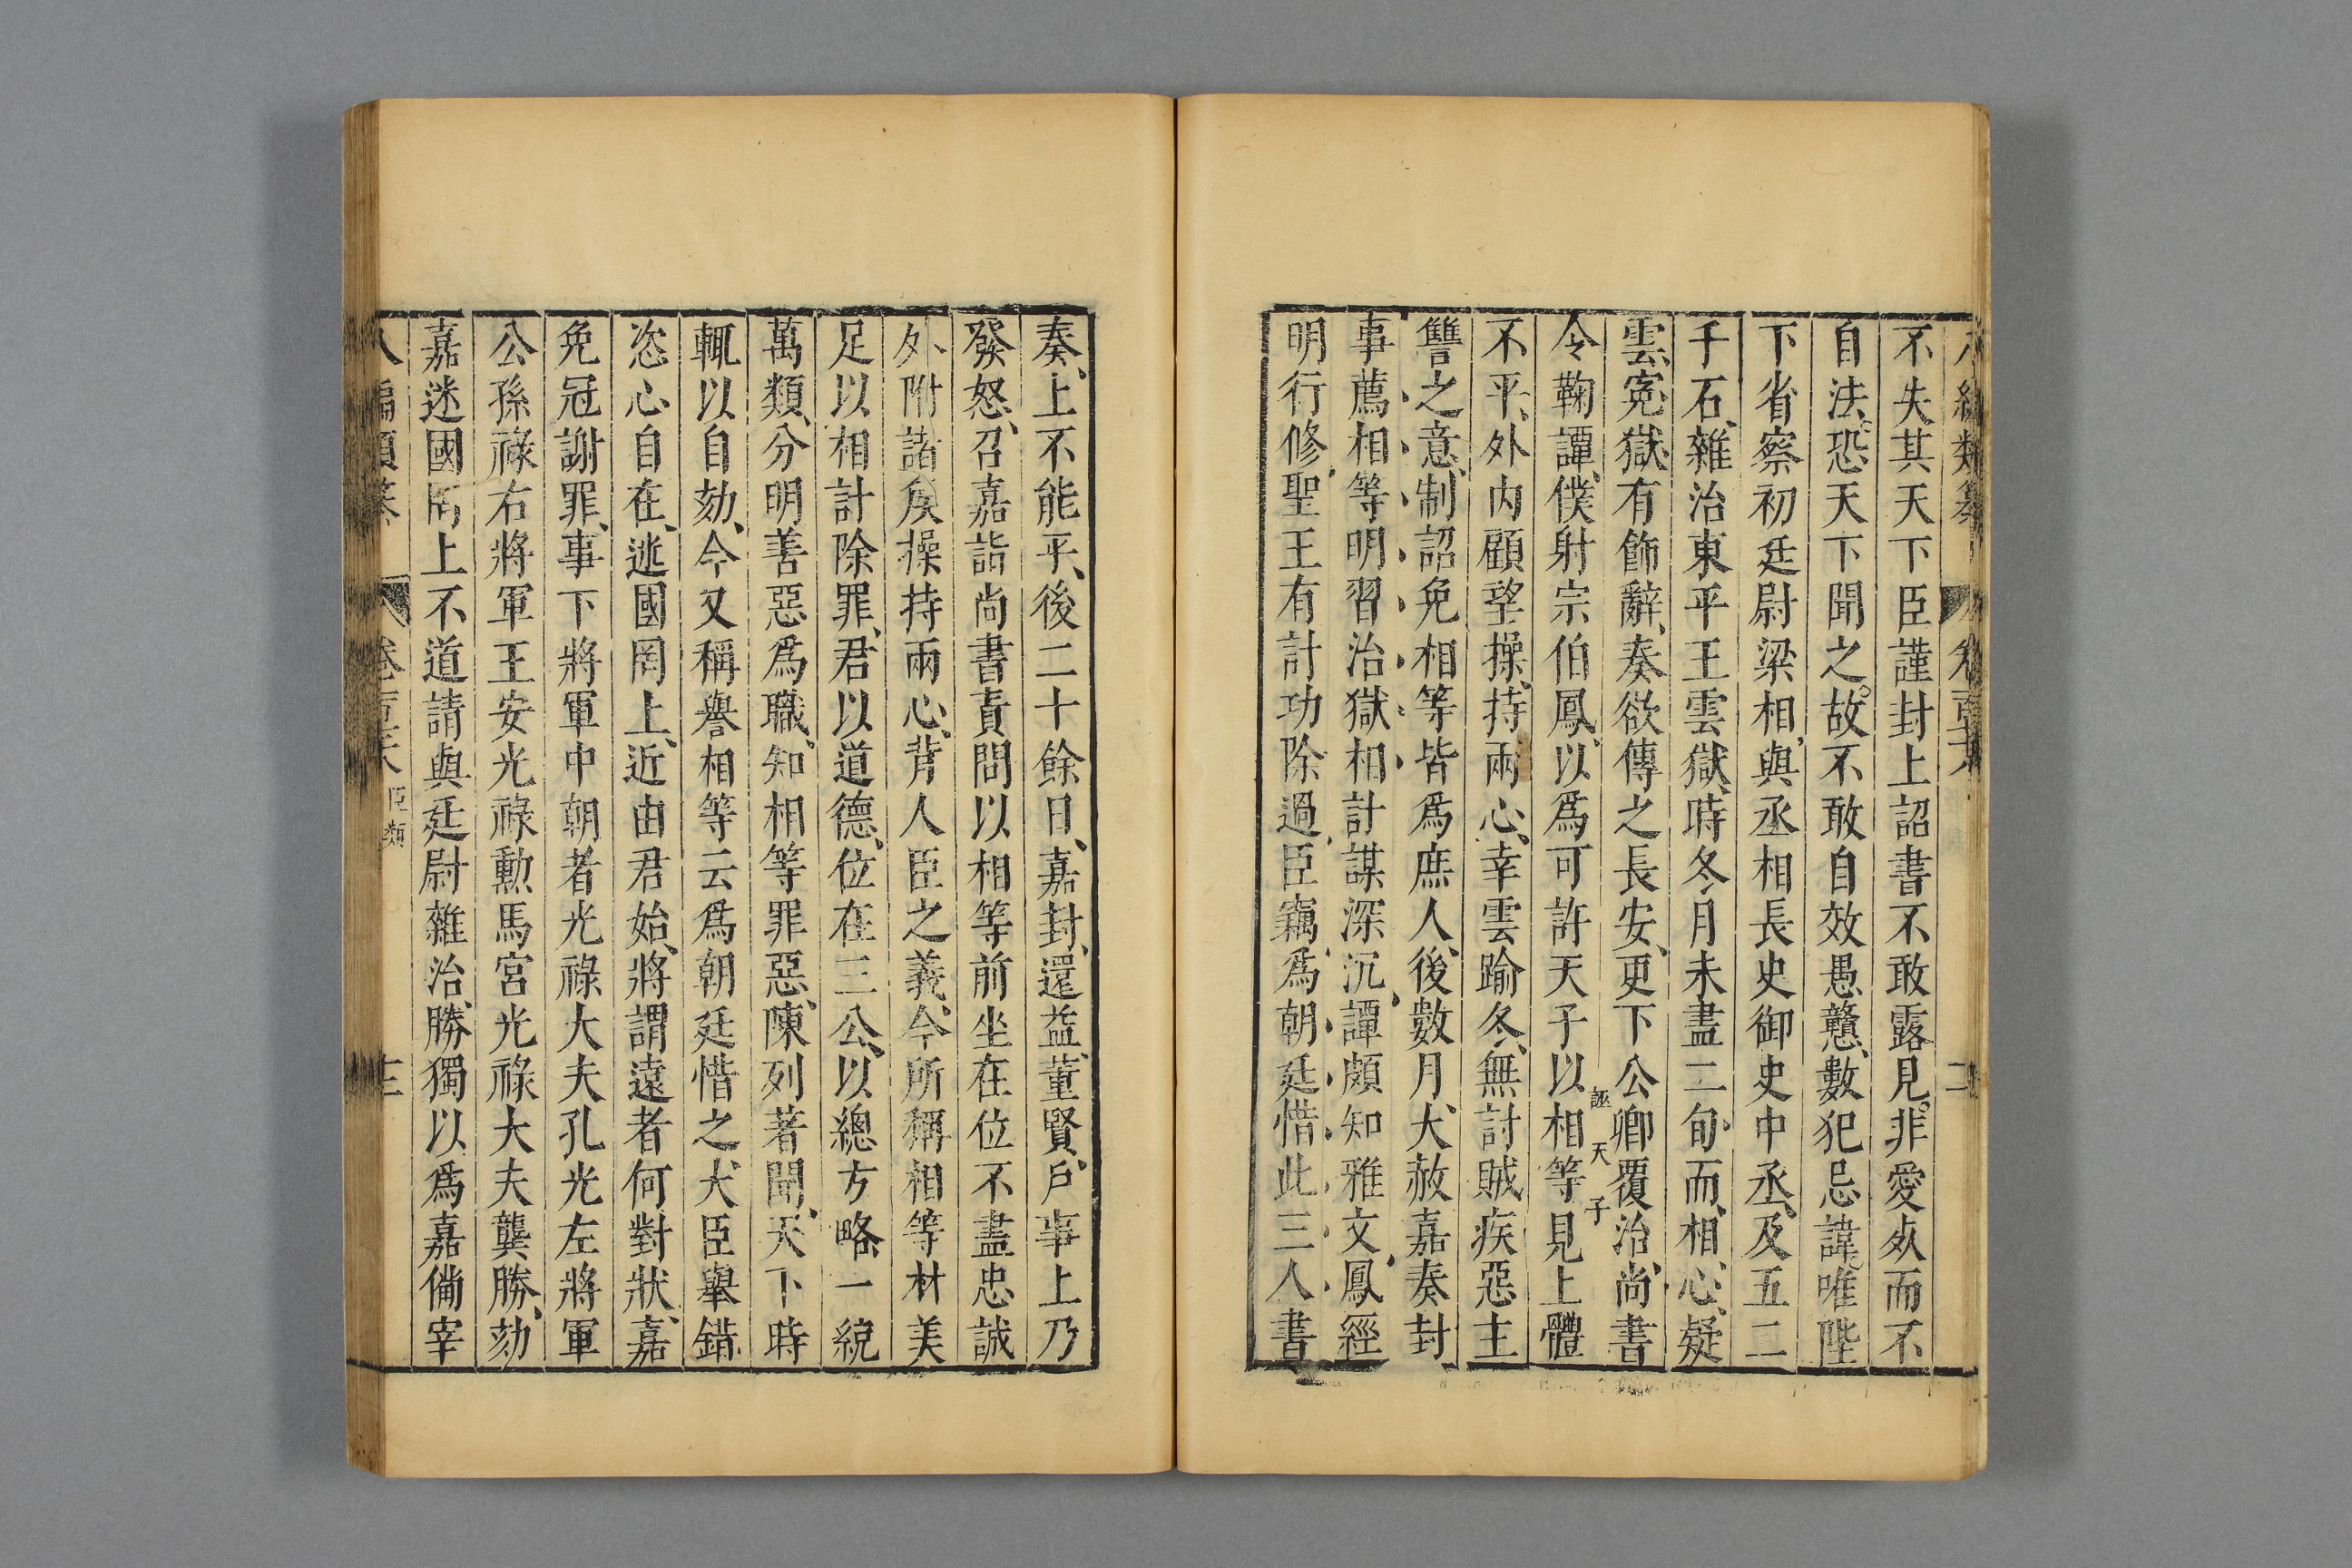 不失其天下臣謹封上詔書不敢露見非愛死而不
自法恐天下聞之故不敢自效愚戇數犯忌諱唯陛
下省察初廷尉梁相與丞相長史御史中丞及五二
千石雜治東平王雲獄時冬月未盡二旬而相心疑
雲寃獄有飾辭奏欲傳之長安更下公卿覆治尚書
誣天子
令鞠譚僕射宗伯鳳以爲可許天子以相等見上體
不平外内顧望操持兩心幸雲踰冬無討賊疾惡主
讐之意制詔免相等皆爲庶人後數月大赦嘉奏封
事薦相等明習治獄相計謀深沉譚頗知雅文鳳經
明行修聖王有計功除過臣竊爲朝廷惜此三人書
奏上不能平後二十餘日嘉封還益董賢戶事上乃
發怒召嘉詣尚書責問以相等前坐在位不盡忠誠
外附諸矦操持兩心背人臣之義今所稱相等材美
足以相計除罪君以道德位在三公以總方略一統
萬類分明善惡爲職知相等罪惡陳列著聞天下時
輒以自劾今又稱譽相等云爲朝廷惜之大臣舉錯
恣心自在迷國罔上近由君始將謂遠者何對狀嘉
免冠謝罪事下將軍中朝者光祿大夫孔光左將軍
公孫祿右將軍王安光祿勲馬宮光祿大夫龔勝劾
嘉迷國罔上不道請與廷尉雜治勝獨以爲嘉備宰
臣類